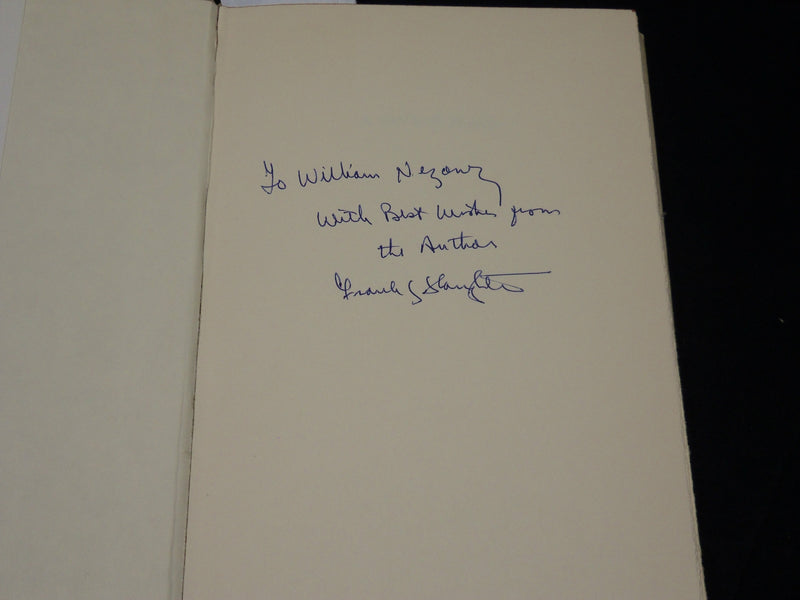 To William Nezowy
With Best Wishes from
the Author
Frank G Slaughter